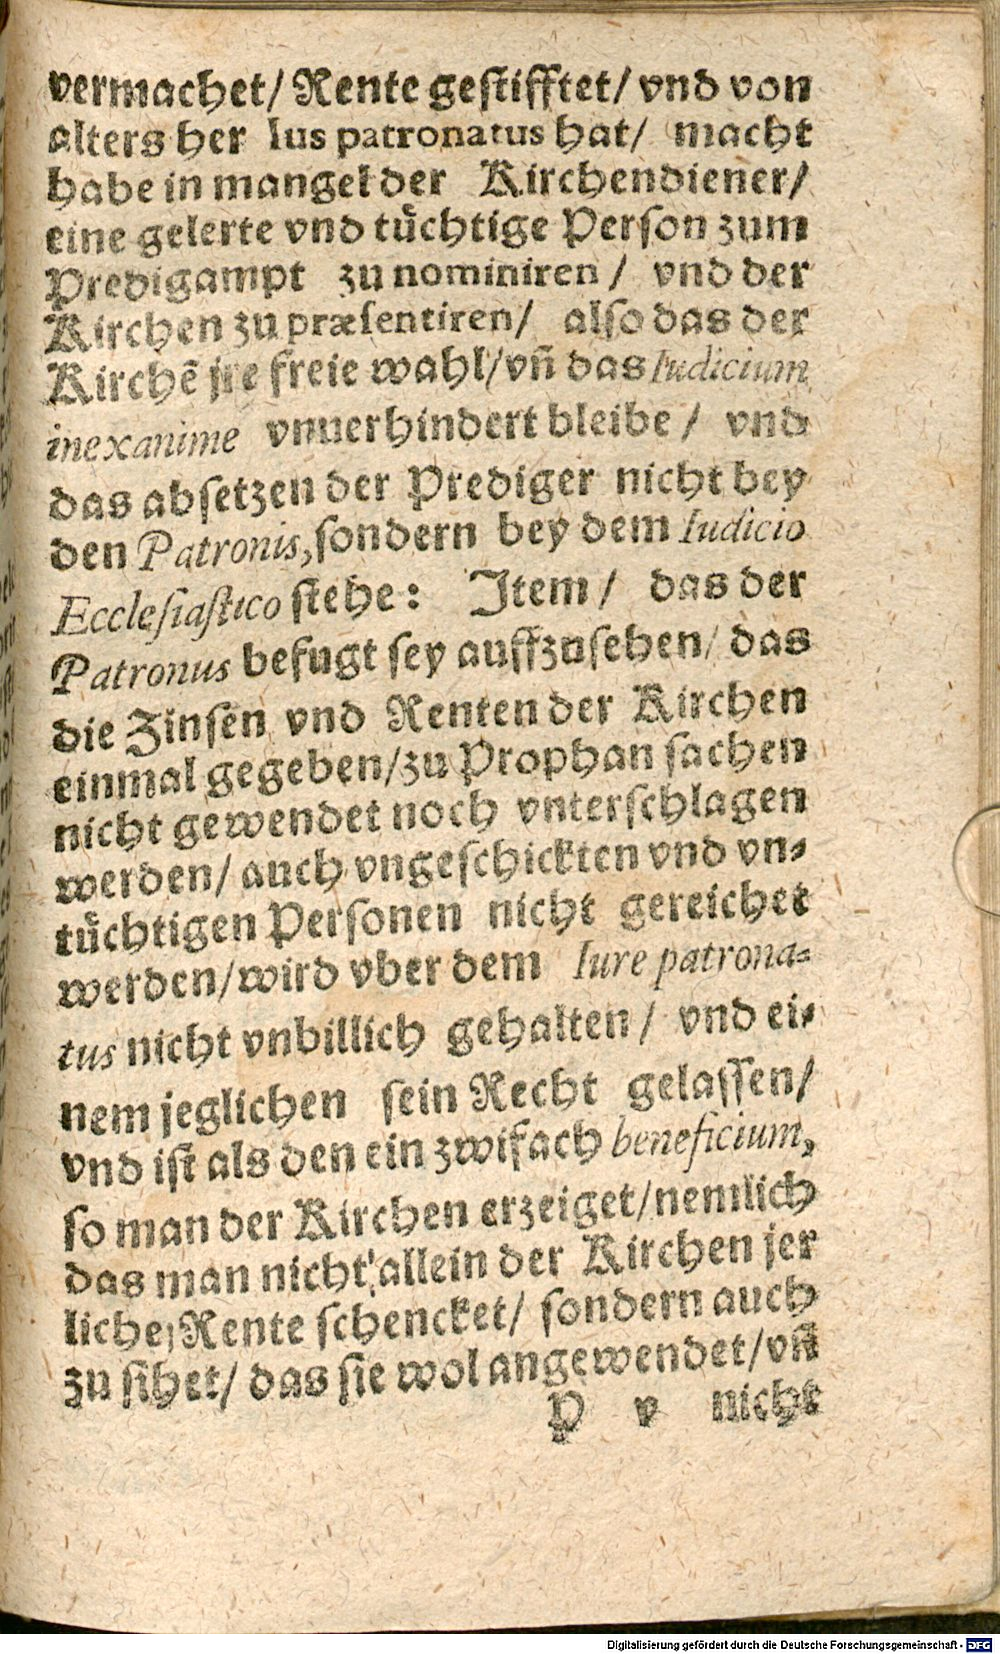 vermachet/ Rente geſtifftet/ vnd von
alters her Ius patronatus hat/ macht
habe in mangel der Kirchendiener/
eine gelerte vnd tuͤchtige Perſon zum
Predigampt zu nominiren / vnd der
Kirchen zu præſentiren/ alſo das der
Kirchẽ jre freie wahl/vñ das Iudicium
inexanime vnuerhindert bleibe / vnd
das abſetzen der Prediger nicht bey
den Patronis, ſondern bey dem Iudicio
Eccleſiaſtico ſtehe: Item / das der
Patronus befugt ſey auffzuſehen/ das
die Zinſen vnd Renten der Kirchen
einmal gegeben/zu Prophan ſachen
nicht gewendet noch vnterſchlagen
werden/ auch vngeſchickten vnd vn⸗
tuͤchtigen Perſonen nicht gereichet
werden/wird vber dem Iure patrona⸗
tus nicht vnbillich gehalten / vnd ei⸗
nem jeglichen ſein Recht gelaſſen/
vnd iſt als den ein zwifach beneficium,
ſo man der Kirchen erzeiget/nemlich
das man nicht allein der Kirchen jer
liche Rente ſchencket/ ſondern auch
zu ſihet/ das ſie wol angewendet/vñ
P v nicht
Digitalisierung gefördert durch die Deutsche Forschungsgemeinschaft - DFG